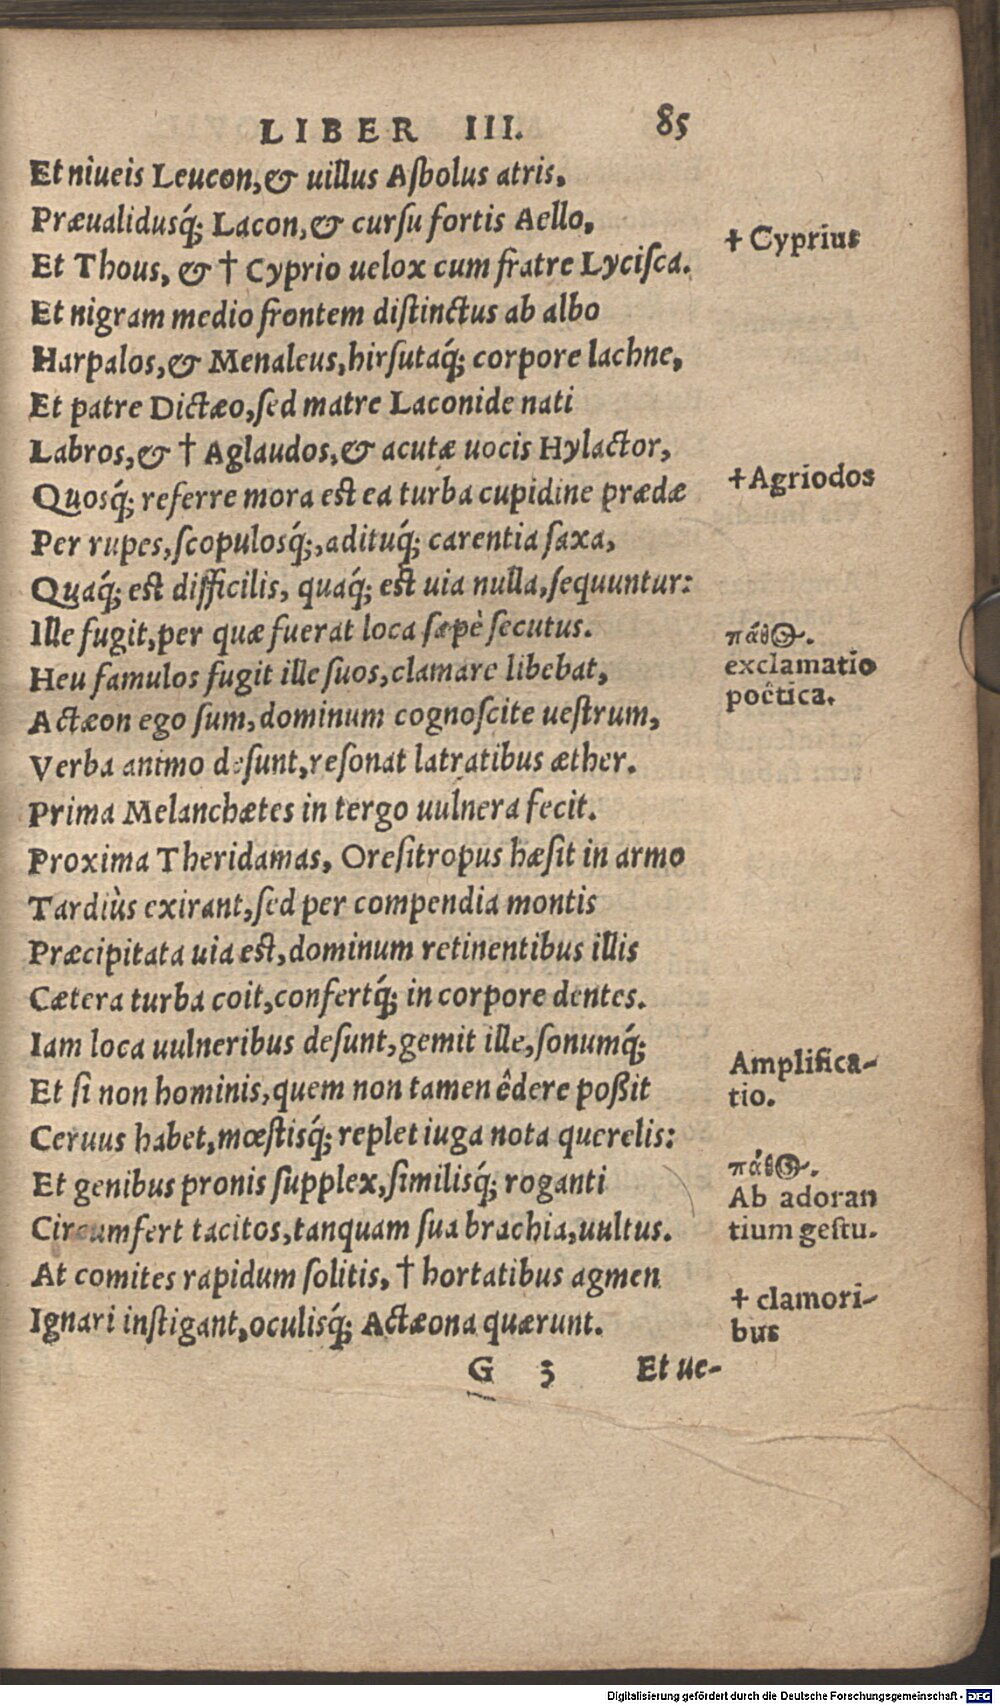 LIBER III. 85
Et niueis Leucon, & uillus Aſbolus atris.
Præualidusq́; Lacon, & curſu fortis Aello,
Et Thous, & † Cyprio uelox cum fratre Lyciſca.
Et nigram medio frontem diſtinctus ab albo
Harpalos, & Menaleus, hirſutaq́; corpore lachne,
Et patre Dictæo, ſed matre Laconide nati
Labros, & † Aglaudos, & acutæ uocis Hylactor,
Quosq́; referre mora eſt ea turba cupidine prædæ
Per rupes, ſcopulosq́;, adituq́; carentia ſaxa,
Quaq́; eſt difficilis, quaq́; eſt uia nulla, ſequuntur:
Ille fugit, per quæ fuerat loca ſæpè ſecutus.
Heu famulos fugit ille ſuos, clamare libebat,
Actæon ego ſum, dominum cognoſcite ueſtrum,
Verba animo deſunt, reſonat latratibus æther.
Prima Melanchætes in tergo uulnera fecit.
Proxima Theridamas, Oreſitropus hæſit in armo
Tardiùs exirant, ſed per compendia montis
Præcipitata uia eſt, dominum retinentibus illis
Cætera turba coit, confertq́; in corpore dentes.
Iam loca uulneribus deſunt, gemit ille, ſonumq́;
Et ſi non hominis, quem non tamen êdere poßit
Ceruus habet, mœſtisq́; replet iuga nota querelis:
Et genibus pronis ſupplex, ſimilisq́; roganti
Circumfert tacitos, tanquam ſua brachia, uultus.
At comites rapidum ſolitis, † hortatibus agmen
Ignari inſtigant, oculisq́; Actæona quærunt.
G 3 Et ue-
† Cyprius
† Agriodos
πάθος.
exclamatio
poêtica.
Amplifica-
tio.
πάθος.
Ab adoran
tium geſtu.
† clamori-
bus
Digitalisierung gefördert durch die Deutsche Forschungsgemeinschaft - DFG